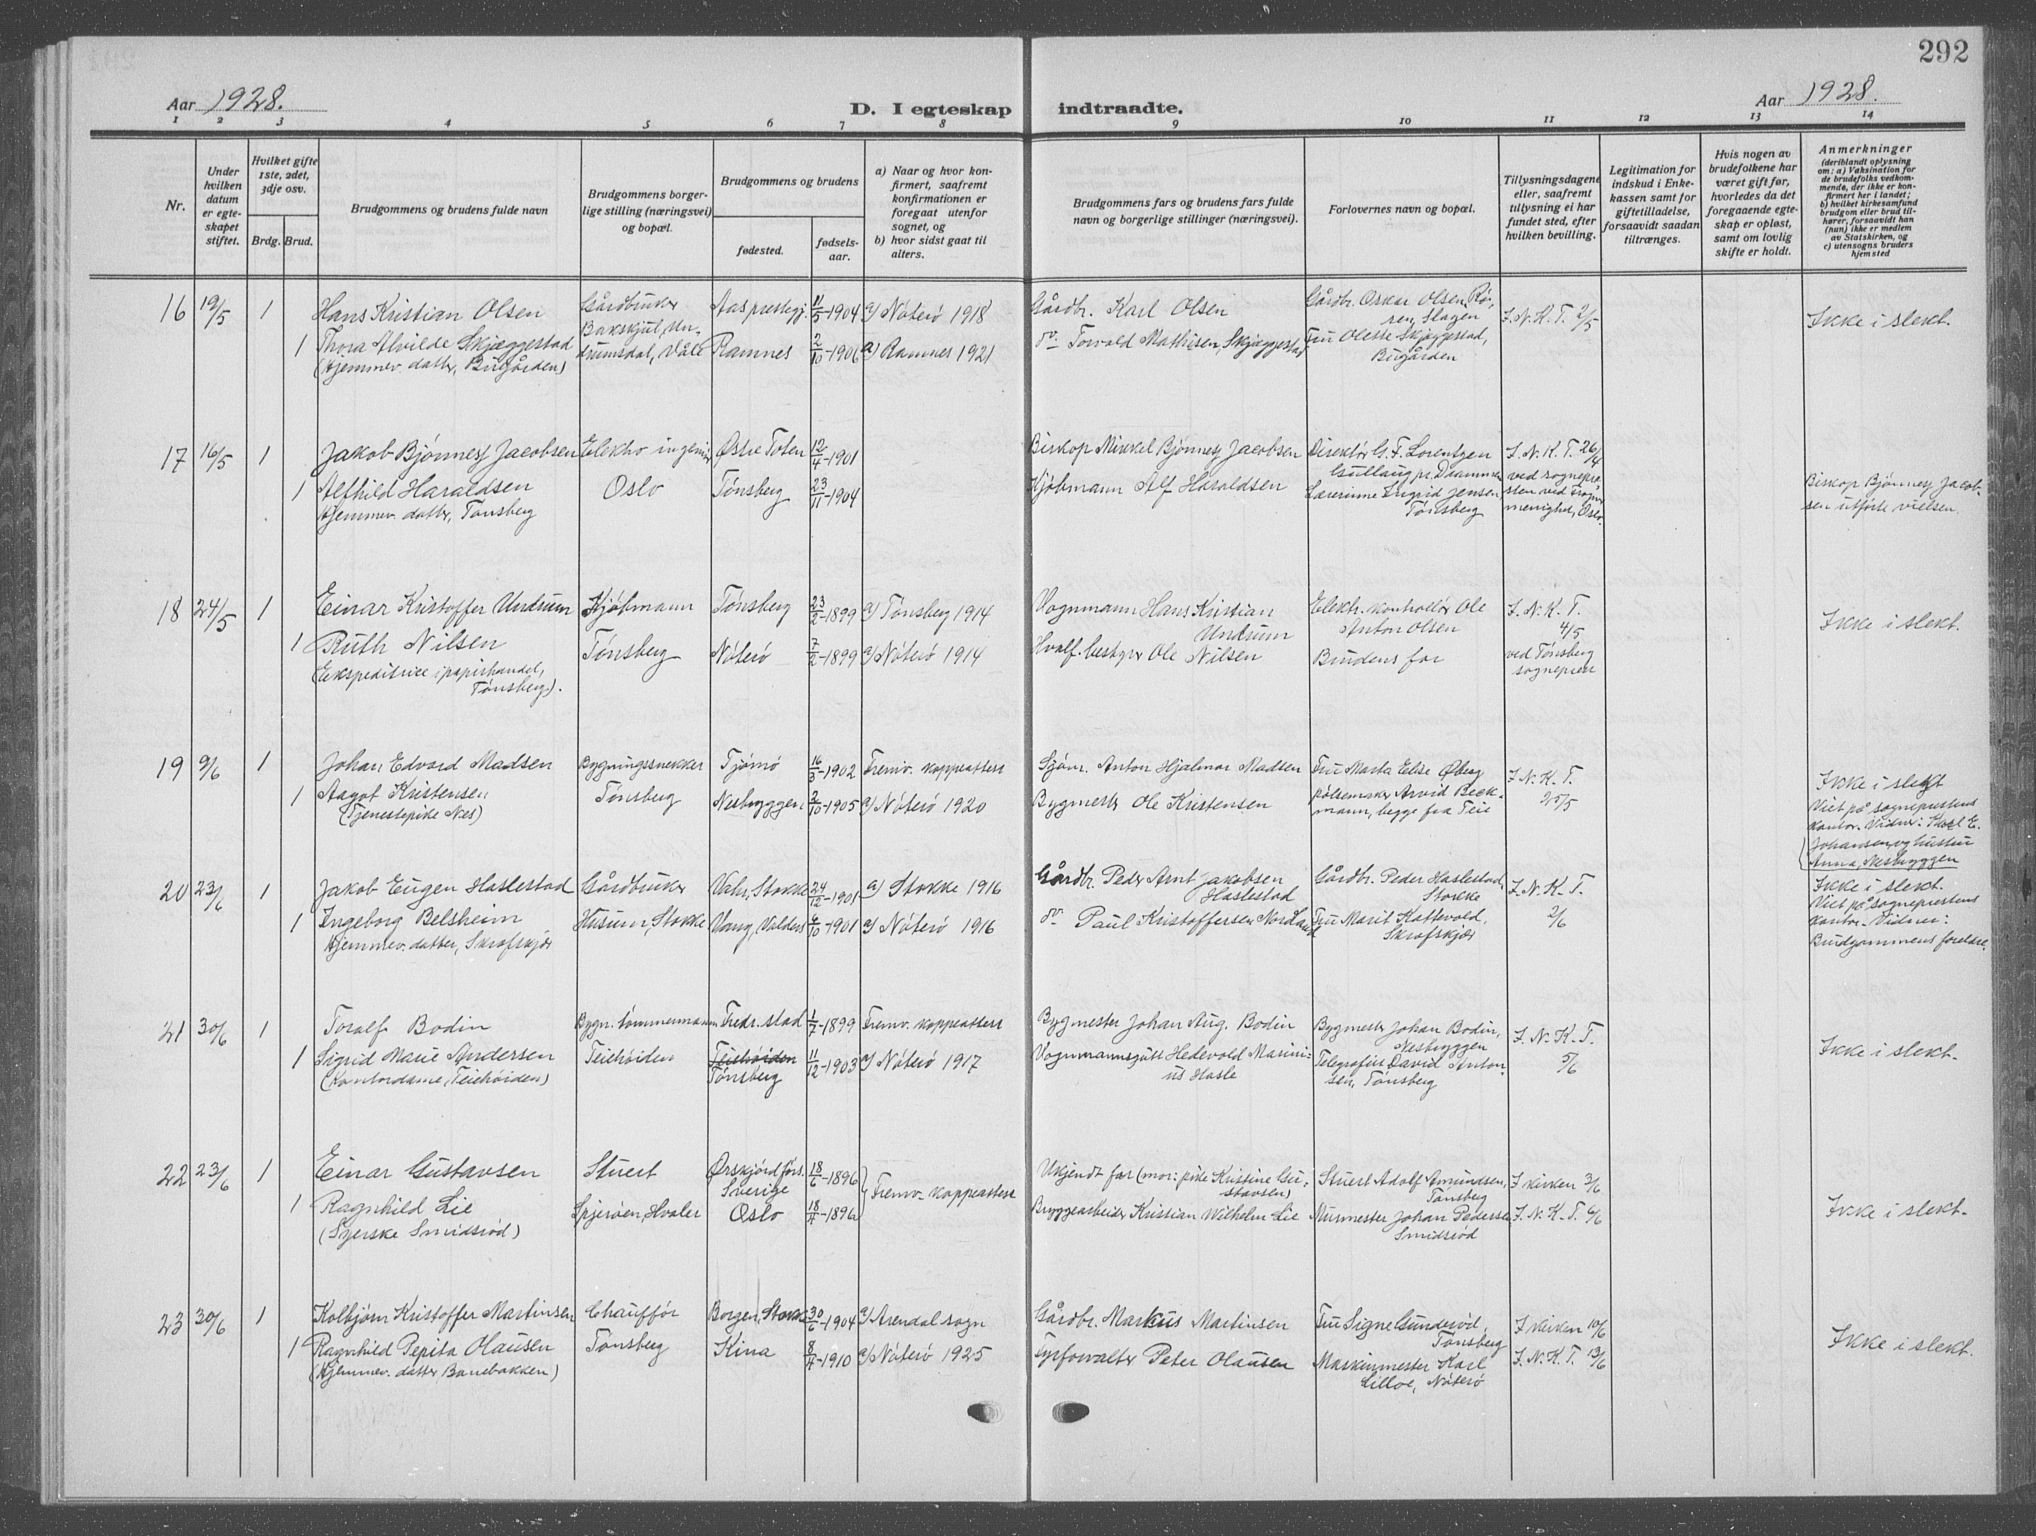 292
Aar 1928.
D. I egteskap indtraadte.
Aar 1928.
1 2 3 4 5 6 7 8 9 10 11 12 13 14
Nr.
Under hvilken datum er egteskapet stiftet.
Hvilket gifte 1ste, 2det, 3dje osv.
Brdg. Brud.
Brudgommens og brudens fulde navn
Brudgommens borgerlige stilling (næringsvei) og bopæl.
Brudgommens og brudens
fødested.
fødselsaar.
a) Naar og hvor konfirmert, saafremt konfirmationen er foregaat utenfor sognet, og
b) hvor sidst gaat til alters.
Brudgommens fars og brudens fars fulde navn og borgerlige stillinger (næringsvei).
Forlovernes navn og bopæl.
Tillysningsdagene eller, saafremt tillysning ei har fundet sted, efter hvilken bevilling.
Legitimation for indskud i Enkekassen samt for giftetilladelse, forsaavidt saadan tiltrænges.
Hvis nogen av brudefolkene har været gift før, hvorledes da det foregaaende egteskap er opløst, samt om lovlig skifte er holdt.
Anmerkninger
(deriblandt oplysning om: a) Vaksination for de brudefolks vedkommende, der ikke er konfirmert her i landet; b) hvilket kirkesamfund brudgom eller brud tilhører, forsaavidt han (hun) ikke er medlem av Statskirken, og c) utensogns bruders hjemsted
16 19/5 1 Hans Kristian Olsen Gårdbruker Aas prestegj. 11/5-1904 a) Nøterø 1918 Gårdbr. Karl Olsen Gårdbr. Oskar Olsen, Røren, Slagen I. N. K. T. 2/5 Ikke i slekt.
1 Thora Alvilde Skjæggestad Bakskjul, Undrumsdal, Våle Ramnes 2/10-1906 a) Ramnes 1921 do- Torvald Mathisen, Skjæggestad Fru Olette Skjæggestad, Bugården
(Hjemmev. datter, Bugården)
17 16/5 1 Jakob Bjønness Jacobsen Elektro ingeniør Østre Toten 12/4-1901 Biskop Mikkel Bjønness Jacobsen Direktør G. F. Lorentzen Gullaug pr. Drammen I. N. K. T. 26/4
1 Alfhild Haraldsen Oslo Tønsberg 23/11-1904 Kjøbmann Alf Haraldsen Lærerinne Sigrid Jensen Tønsberg ved sognepresten ved Frognermenighed, Oslo. Biskop Bjønness Jacobsen utførte vielsen.
Hjemmev. datter, Tønsberg
18 24/5 1 Einar Kristoffer Undrum Kjøbmann Tønsberg 23/2-1899 a) Tønsberg 1914 Vognmann Hans Kristian Undrum Elektr. kontrollør Ole Anton Olsen I. N. K. T. 4/5 Ikke i slekt.
1 Ruth Nilsen Tønsberg Nøterø 7/2-1899 a) Nøterø 1914 Hvalf. bestyrer Ole Nilsen Brudens far ved Tønsberg sogneprest
(Ekspeditrice i papirhandel, Tønsberg).
19 9/6 1 Johan Edvard Madsen Bygningssnekker Tjømø 16/3-1902 Fremv. koppeattest Sjøm. Anton Hjalmar Madsen Fru Marta Elise Øberg I. N. K. T. 25/5 Ikke i slekt
1 Aagot Kristensen Tønsberg Nesbryggen 2/10-1905 a) Nøterø 1920 Bygmester Ole Kristensen pølsemaker Arvid Beckmann, begge fra Teie
(Tjenestepike Nes)
Viet på sogneprestens kontor. Vidner: Karl E. Johansen og hustru Anna, Nesbryggen
20 23/6 1 Jakob Eugen Haslestad Gårdbruker Vals, Stokke 24/12-1901 a) Stokke 1916 Gårdbr. Peder Arnt Jakobsen Haslestad Gårdbr. Peder Haslestad, Stokke I. N. K. T. 2/6 Ikke i slekt.
1 Ingeborg Belsheim Husum, Stokke Vang, Valdres 6/10-1901 a) Nøterø 1916 do- Paul Kristoffersen Nordland Fru Marit Kattevold, Skrofskjær
Hjemmev. datter, Skrofskjær
Viet på sogneprestens kontor - Vidner: Brudgommens foreldre.
21 30/6 1 Toralf Bodin Bygn. tømmermann Fredr.stad 1/7-1899 Fremv. koppeattest Bygmester Johan Aug. Bodin Bygmester Johan Bodin, Nesbryggen I. N. K. T. 5/6 Ikke i slekt.
1 Sigrid Marie Andersen Teiehøiden Teiehøiden Tønsberg 11/12-1903 a) Nøterø 1917 Vognmannsgutt Hedevold Marinius Hasle Telegrafist David Antonsen, Tønsberg
(Kontordame, Teiehøiden)
22 23/6 1 Einar Gustavsen Stuert Ørskjørd förs. Sverige 18/6-1896 Fremv. koppeattest Ukjendt far (mor: pike Kristine Gustavsen) Stuert Adolf Amundsen, Tønsberg I kirken 3/6
1 Ragnhild Lie Spjerøen, Hvaler Oslo 18/4-1896 Bryggearbeider Kristian Wilhelm Lie Murmester Johan Pedersen Smidsrød I. N. K. T. 6/6 Ikke i slekt.
(Syerske Smidsrød)
23 30/6 1 Kolbjørn Kristoffer Martinsen Chauffør Borgen, Stokke 30/6-1904 a) Arendal sogn Gårdbr. Markus Martinsen Fru Signe Gunderød, Tønsberg I kirken 10/6
1 Ragnhild Pepita Olausen Tønsberg Kina 8/4-1910 a) Nøterø 1925 Fyrforvalter Peter Olausen Maskinmester Karl Lilloe, Nøterø I. N. K. T. 13/6 Ikke i slekt.
(Hjemmev. datter, Banebakken)